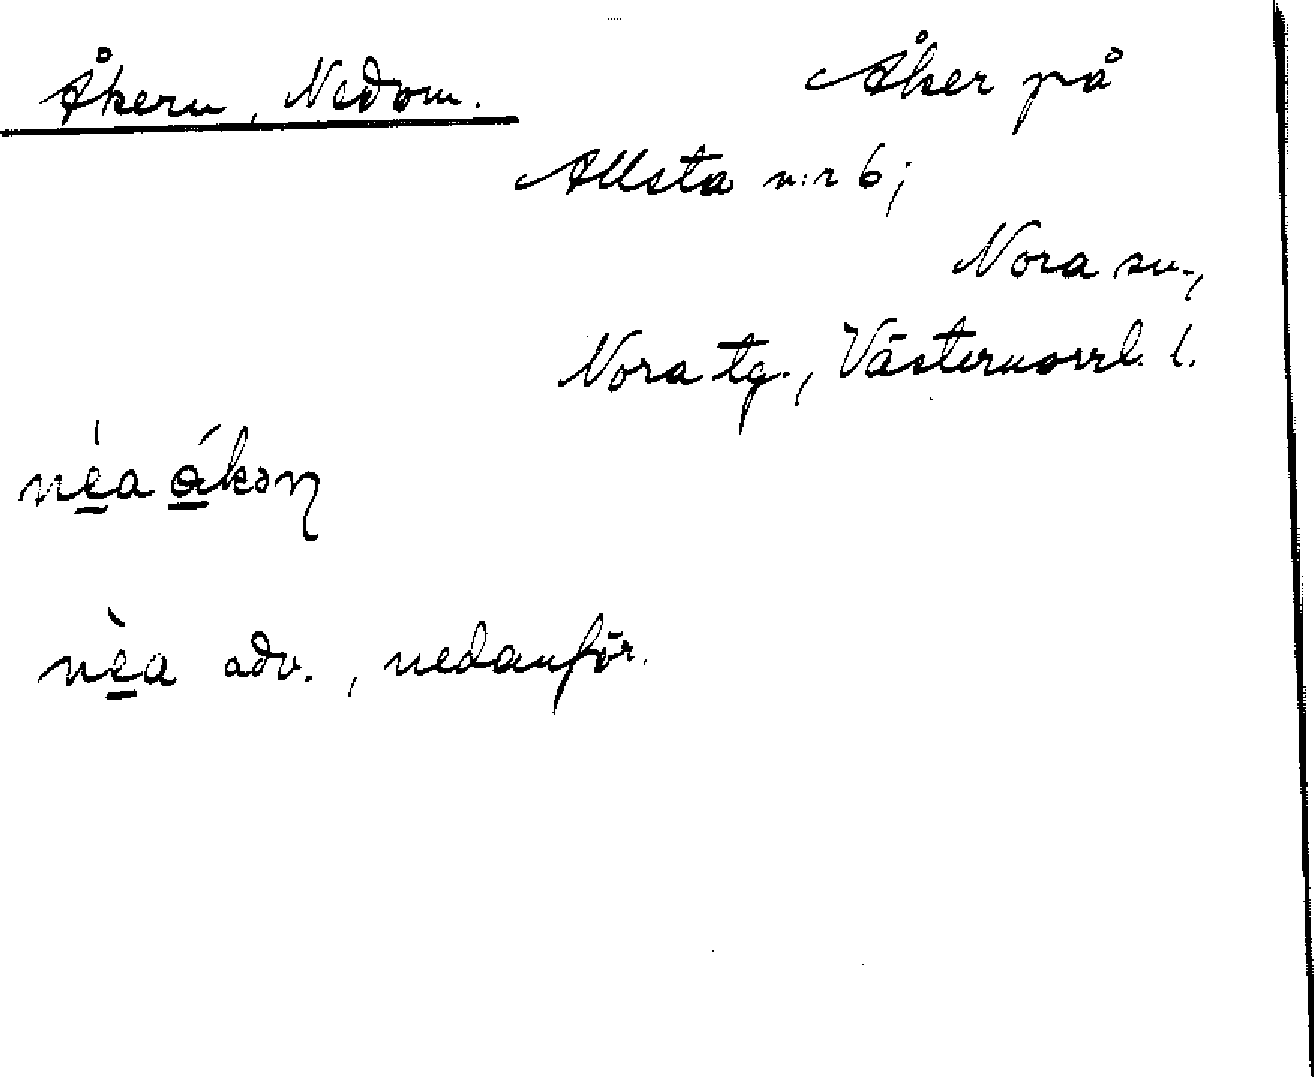 Åkern, Nedom.
Åker på
Allsta n:r 6;
Nora sn.,
Nora tg., Västernorrl. l.
nèa ákəɳ
nèa adv., nedanför.